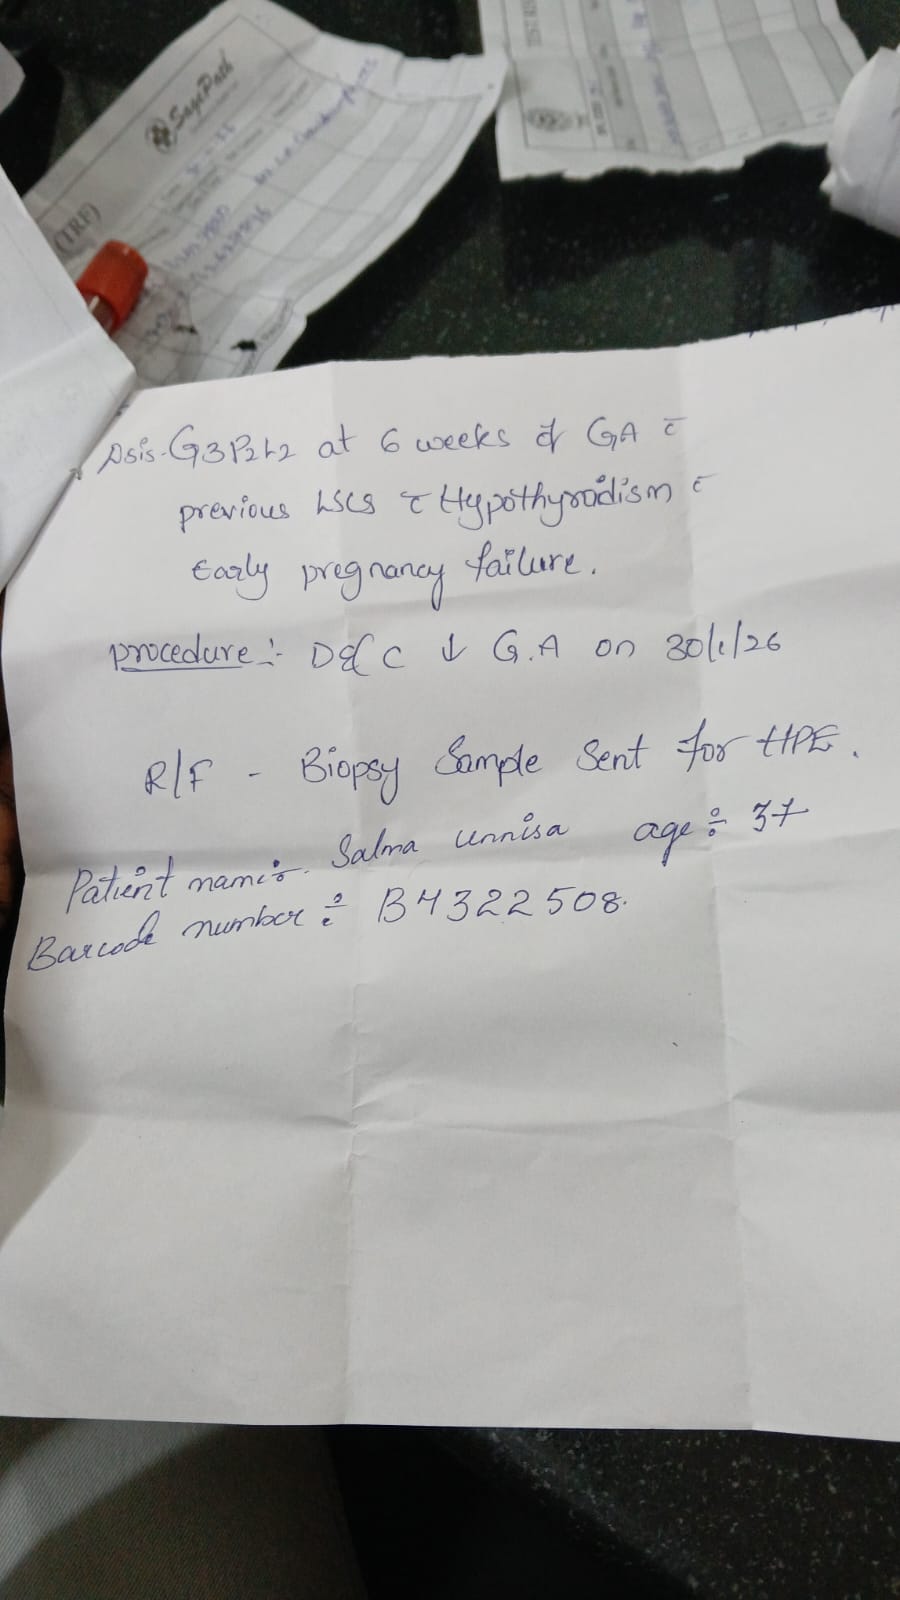 SagePath
(TRF)
Dsis - G3P2L2 at 6 weeks of GA c̄
previous LSCS c̄ Hypothyroidism c̄
Early pregnancy failure.
procedure :- D&C ↓ G.A on 30/1/26
R/F - Biopsy Sample Sent for HPE.
Patient name :- Salma unnisa age :- 37
Barcode number :- B4322508.